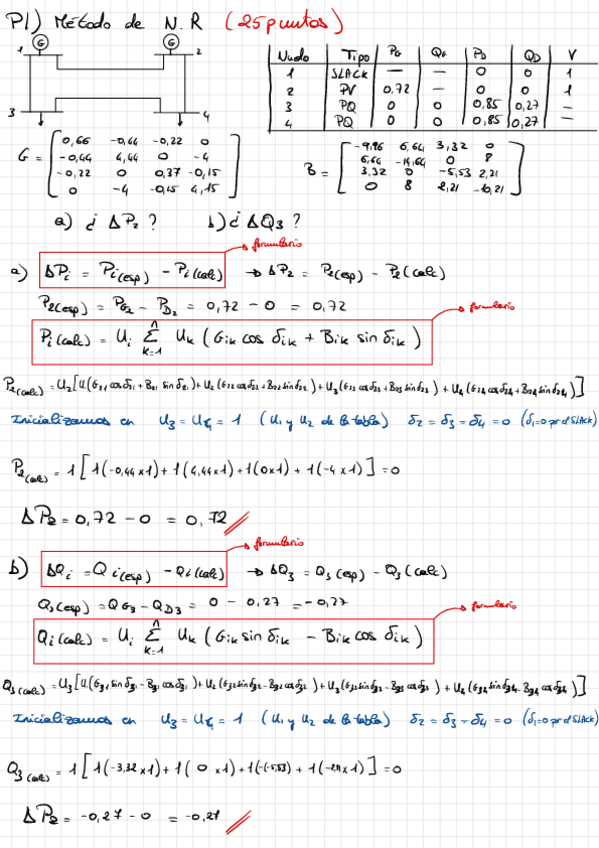 P1) Método de N.R (25 puntos)
1 G G 2
3 4
Nudo Tipo PG QG PD QD V
1 SLACK — — 0 0 1
2 PV 0,72 — 0 0 1
3 PQ 0 0 0,85 0,27 —
4 PQ 0 0 0,85 0,27 —
G = [
0,66 -0,44 -0,22 0
-0,44 4,44 0 -4
-0,22 0 0,37 -0,15
0 -4 -0,15 4,15
]
B = [
-9,96 6,64 3,32 0
6,64 -14,64 0 8
3,32 0 -5,53 2,21
0 8 2,21 -10,21
]
a) ¿ ΔP2 ? b) ¿ ΔQ3 ?
→ formulario
a) ΔPi = Pi(esp) - Pi(calc) → ΔP2 = P2(esp) - P2(calc)
P2(esp) = PG2 - PD2 = 0,72 - 0 = 0,72
→ formulario
Pi(calc) = Ui Σ k=1 n Uk (Gik cos δik + Bik sin δik)
P2(calc) = U2[U1(G21 cosδ21 + B21 sin δ21) + U2(G22 cosδ22 + B22 sinδ22) + U3(G23 cosδ23 + B23 sinδ23) + U4(G24 cosδ24 + B24 sinδ24)]
Inicializamos en U3 = U4 = 1 (U1 y U2 de la tabla) δ2 = δ3 = δ4 = 0 (δ1=0 por el SLACK)
P2(calc) = 1[1(-0,44x1) + 1(4,44x1) + 1(0x1) + 1(-4x1)] = 0
ΔP2 = 0,72 - 0 = 0,72
→ formulario
b) ΔQi = Qi(esp) - Qi(calc) → ΔQ3 = Q3(esp) - Q3(calc)
Q3(esp) = QG3 - QD3 = 0 - 0,27 = -0,27
→ formulario
Qi(calc) = Ui Σ k=1 n Uk (Gik sin δik - Bik cos δik)
Q3(calc) = U3[U1(G31 sin δ31 - B31 cosδ31) + U2(G32 sinδ32 - B32 cosδ32) + U3(G33 sinδ33 - B33 cosδ33) + U4(G34 sinδ34 - B34 cosδ34)]
Inicializamos en U3 = U4 = 1 (U1 y U2 de la tabla) δ2 = δ3 = δ4 = 0 (δ1=0 por el SLACK)
Q3(calc) = 1[1(-3,32x1) + 1(0x1) + 1(-(-5,53) + 1(-2,21x1)] = 0
ΔP2 = -0,27 - 0 = -0,27